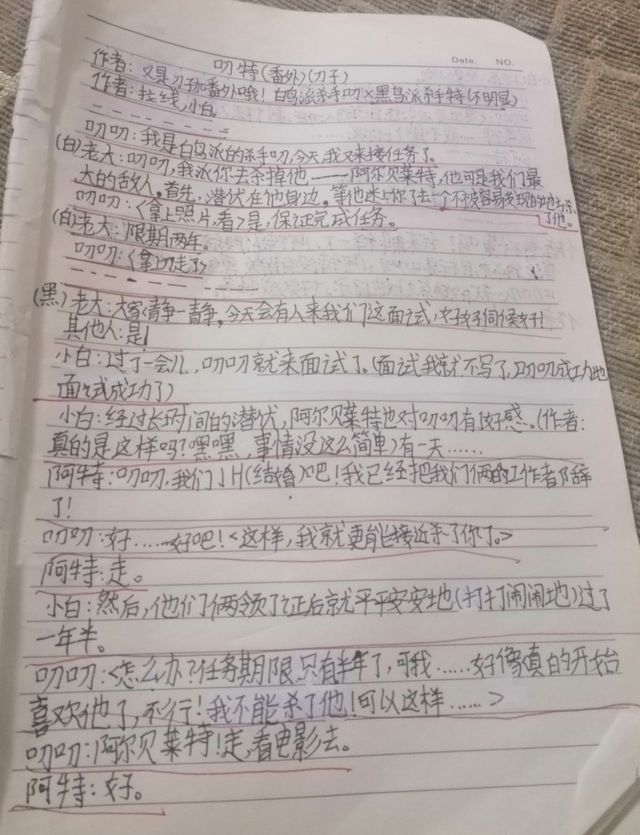 Date. NO.
叨特(番外)(刀子)
作者: 又是刃加番外哦! 白鸟派杀手叨×黑鸟派杀手特(不明显)
作者: 拉线,小白。
叨叨:我是白鸟派的杀手叨,今天,我又来接任务了。
(白)老大:叨叨,我派你去杀掉他——阿尔贝莱特,他可是我们最
大的敌人,首先,潜伏在他身边。等他迷上你了去一个不被容易发现的地方杀
了他。
叨叨:<拿上照片,看>是,保证完成任务。
(白)老大:限期两年。
叨叨:<拿上走了>
(黑)老大:大家静一静,今天会有人来我们这面试,好好伺候好!
其他人:是!
小白:过了一会儿,叨叨就来面试了。(面试我就不写了,叨叨成功地
面试成功了)
小白:经过长时间的潜伏,阿尔贝莱特也对叨叨有好感。(作者:
真的是这样吗?嘿嘿,事情没这么简单)有一天……
阿特:叨叨,我们JH(结婚)吧!我已经把我们俩的工作者阝辞
了!
叨叨:好……好吧!<这样,我就更能接近杀了你了。>
阿特:走。
小白:然后,他们俩领了证后就平平安安地(打打闹闹地)过了
一年半。
叨叨:<怎么办?任务期限只有半年了,可我……好像真的开始
喜欢他了,不行!我不能杀了他!可以这样……>
叨叨:阿尔贝莱特!走,看电影去。
阿特:好。